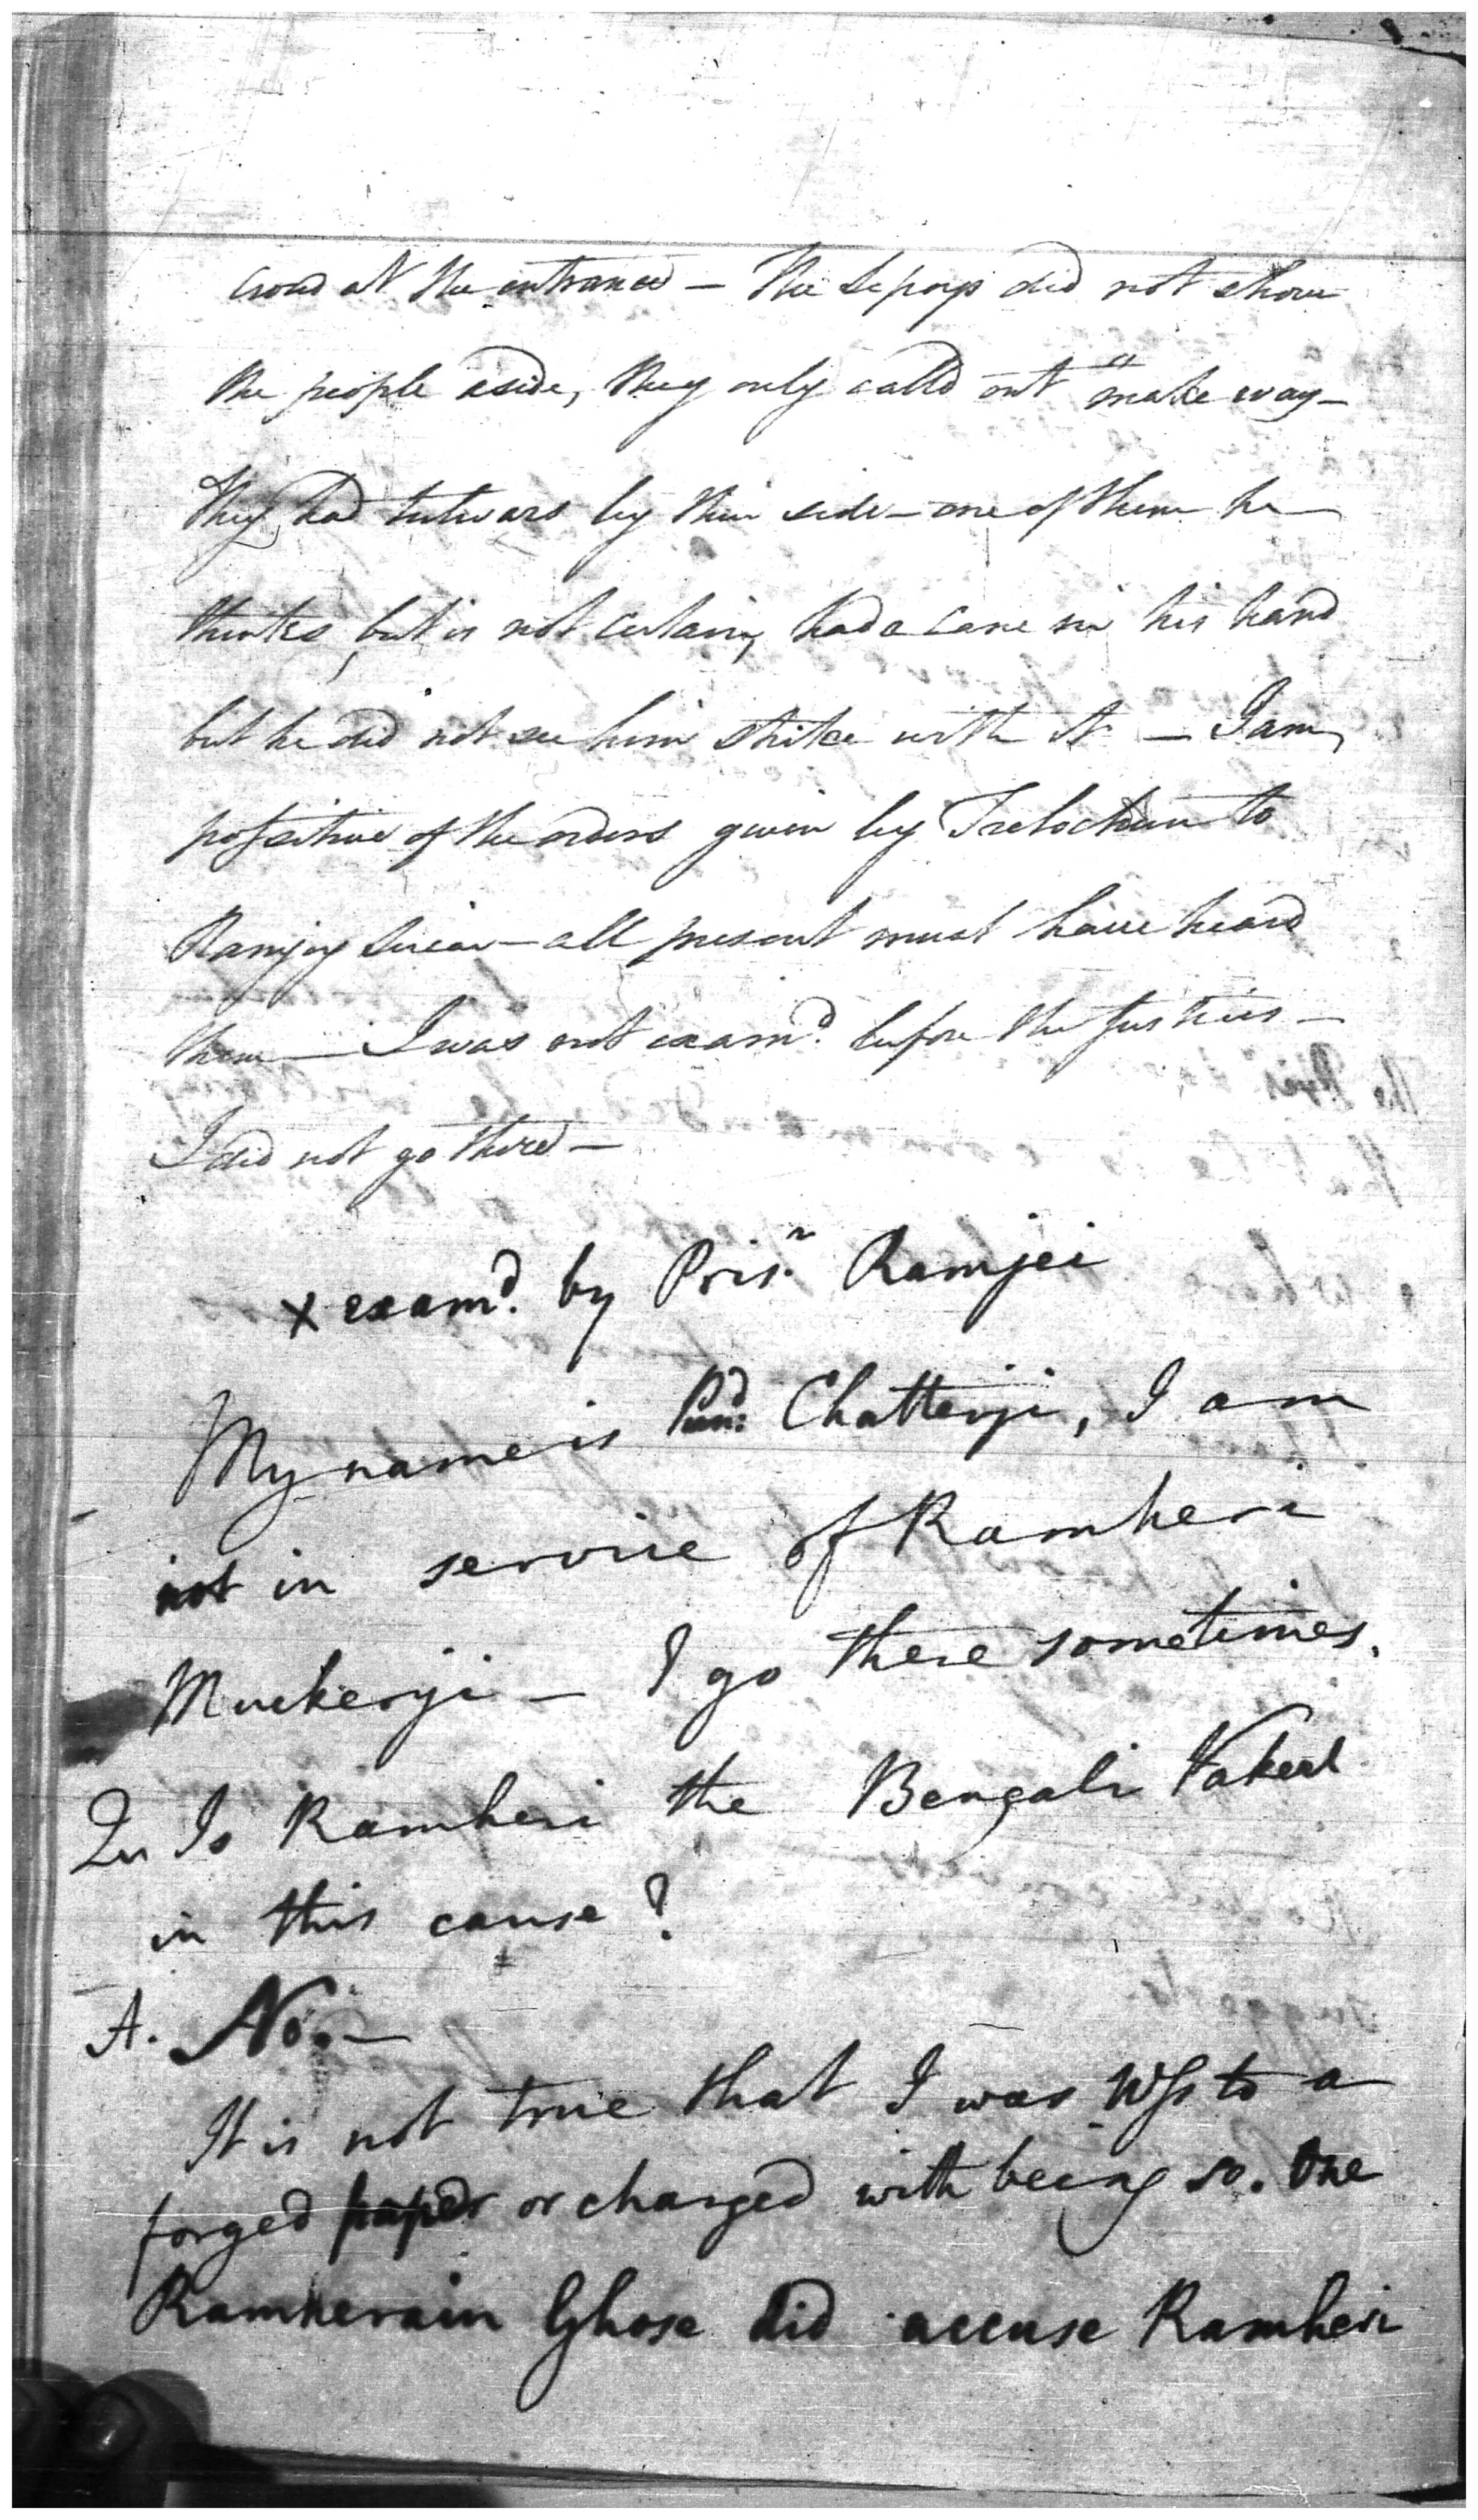 crowd at the entrance — The Sepoys did not shove
the people aside, they only calld out "make way —
They had tulwars by their side — one of them he —
thinks, but is not certain, had a cane in his hand
but he did not see him strike with it — I am
possitive of the orders given by Trelochun to
Ramjoy — all present must have heard
them — I was not examd. before the Justices —
I did not go there —
x examd. by Prisr. Ramjei
My name is Chatterji, I am
not in service of Ramheri
Muckerji — I go there sometimes.
Qu Is Ramheri the Bengali Vakeel
in this cause?
A. No. —
It is not true that I was Wss to a
forged paper or charged with being so. One
Ramnerain Ghose did accuse Ramheri